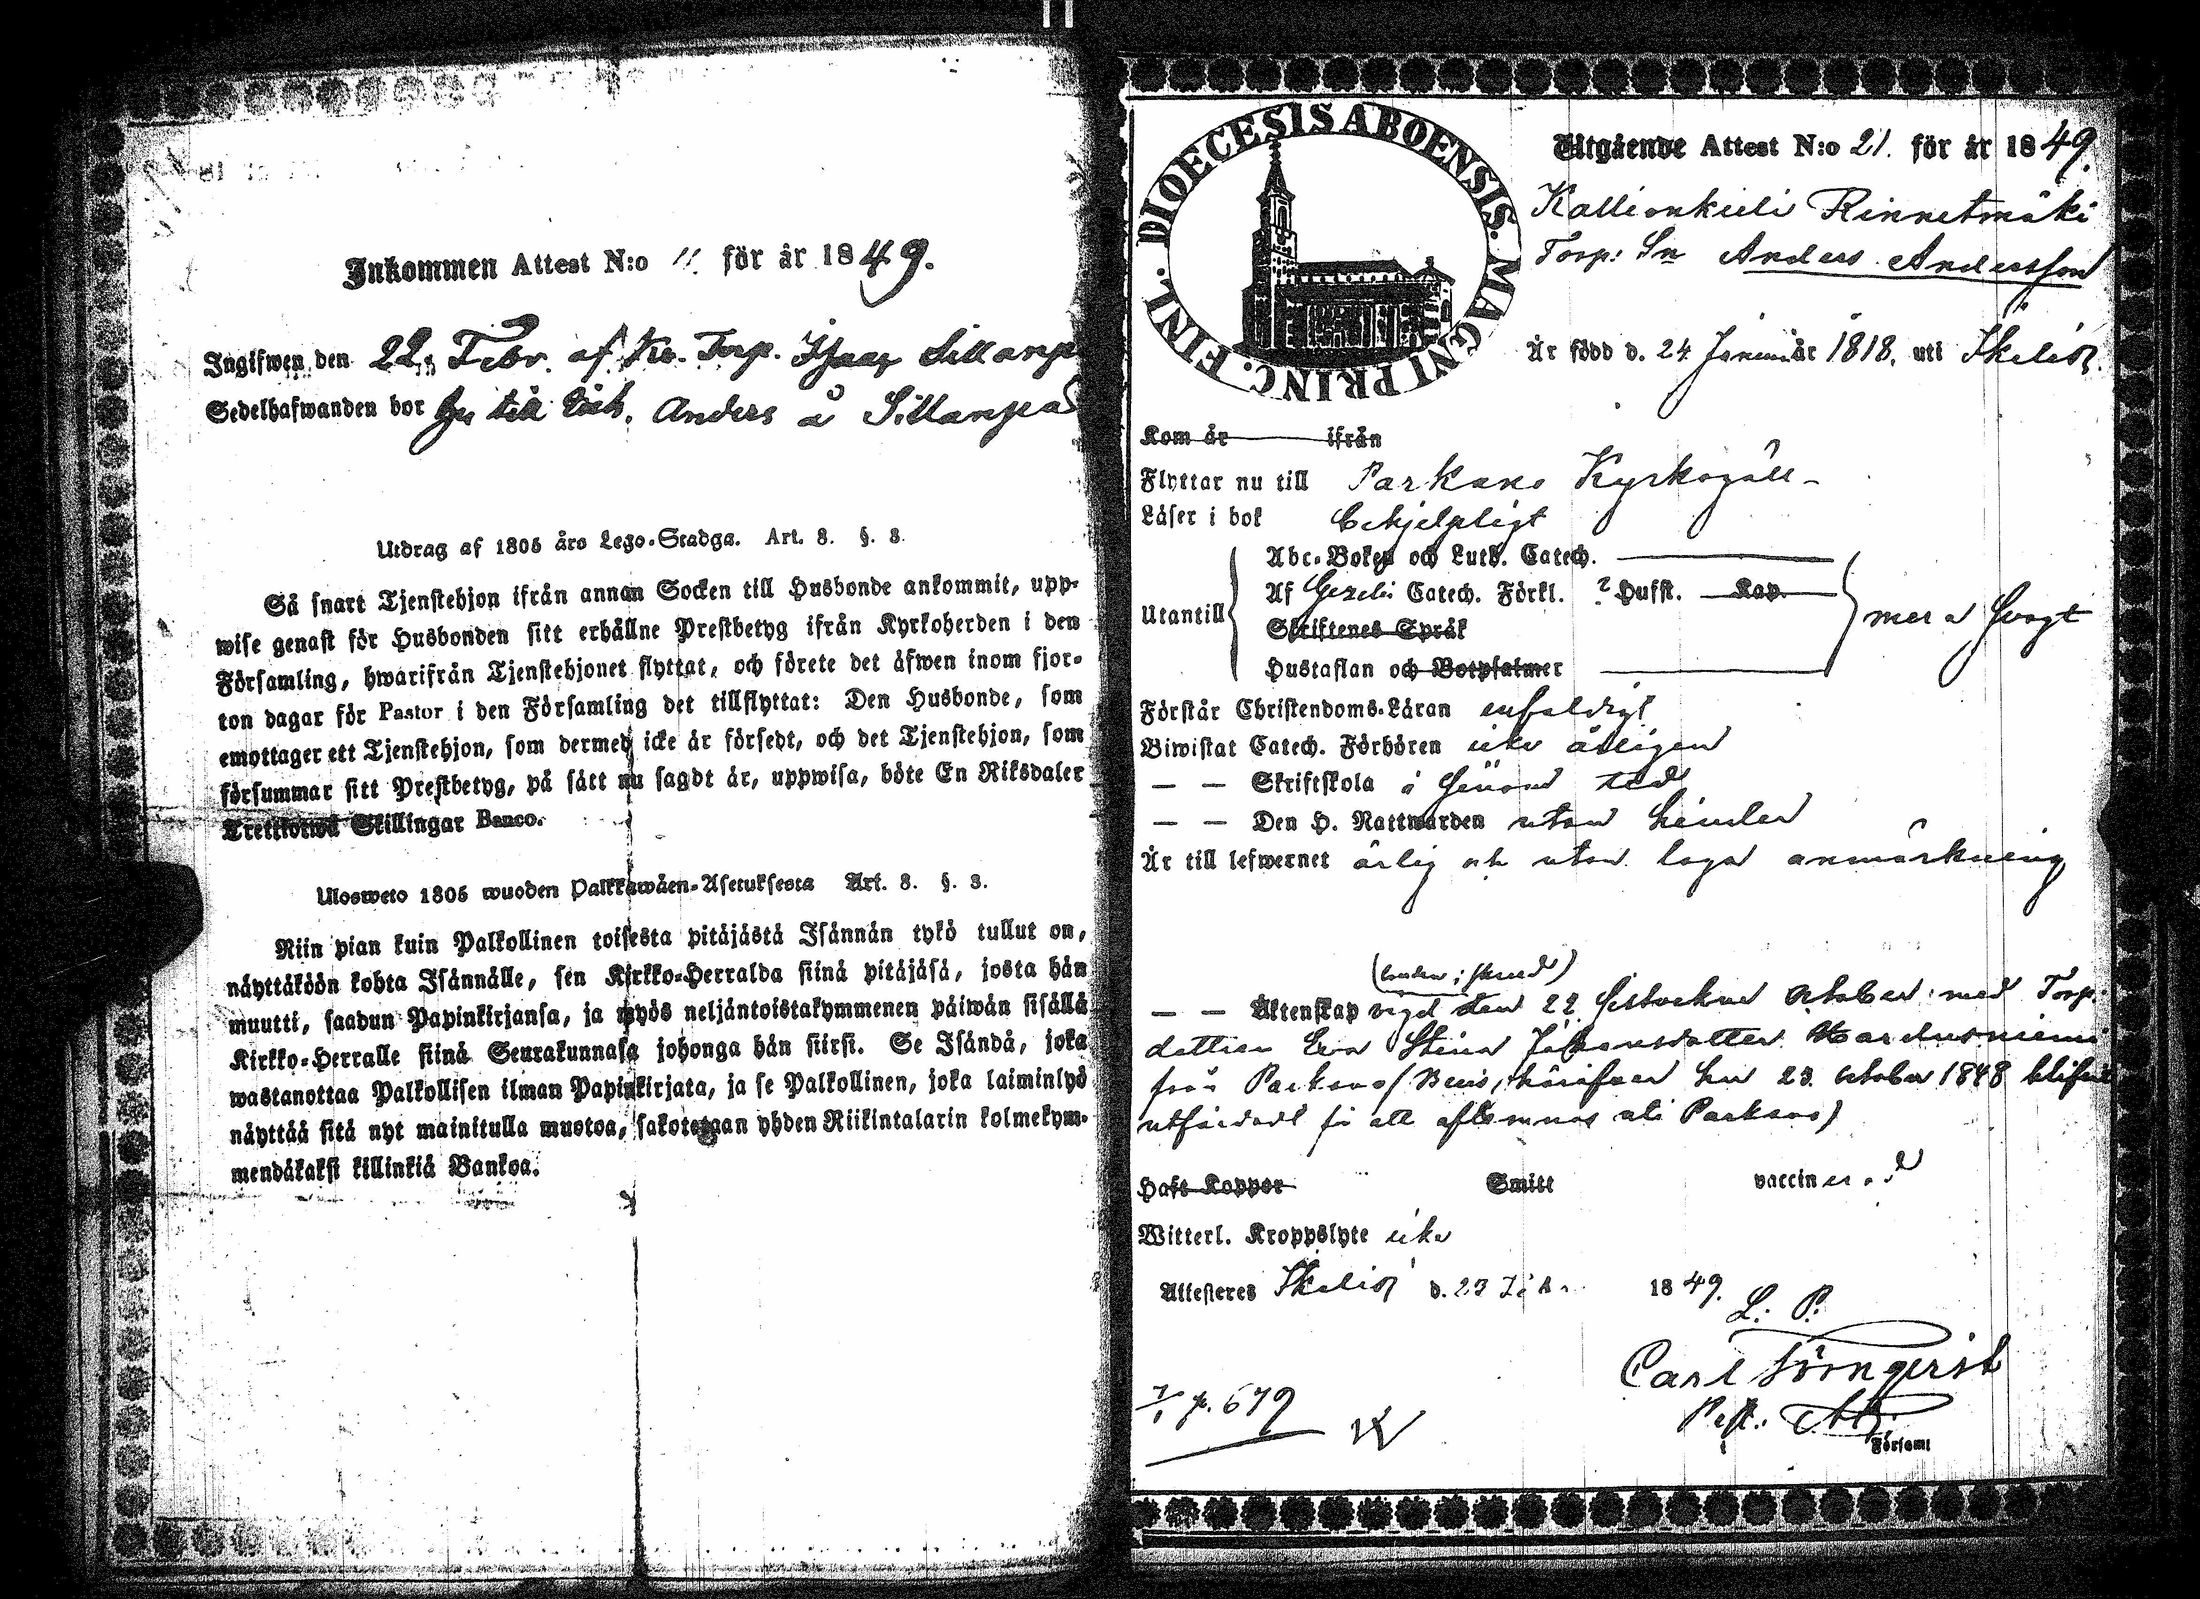 Inkommen Attest N:o 11. för år 1849.
Ingifwen den 22 Febr. af Kr. Torp. Sillanpä
Sedelhafwanden bor till Anders å Sillanpää
Utdrag af 1805 års Lego-Stadga. Art. 8. §. 3.
Så snart Tjenstehjon ifrån annan Socken till Husbonde ankommit, upp-
wise genast för Husbonden sitt erhållne Prestbetyg ifrån Kyrkoherden i den
Församling, hwarifrån Tjenstehjonet flyttat, och förete det äfwen inom fjor-
ton dagar för Pastor i den Församling det tillflyttat: Den Husbonde, som
emottager ett Tjenstehjon, som dermed icke är försedt, och det Tjenstehjon, som
försummar sitt Prestbetyg, på sätt nu sagdt är, uppwisa, böte En Riksdaler
Trettiotwå Skillingar Banco.
Ulosweto 1805 wuoden Palkkawäen-Asetuksesta Art. 8. §. 3.
Niin pian kuin Palkollinen toisesta pitäjästä Isännän tykö tullut on,
näyttäköön kohta Isännälle, sen Kirkko-Herralda siinä pitäjäsä, josta hän
muutti, saadun Papinkirjansa, ja myös neljäntoistakymmenen päiwän sisällä
Kirkko-Herralle siinä Seurakunnasa johonga hän siirsi. Se Isändä, joka
wastanottaa Palkollisen ilman Papinkirjata, ja se Palkollinen, joka laiminlyö
näyttää sitä nyt mainitulla muotoa, sakotetaan yhden Riikintalarin kolmekym-
mendäkaksi killinkiä Bankoa.
DIOECESIS ABOENSIS. MAGNI PRINC. FINL.
Utgående Attest N:o 21. för år 1849.
Kallionkieli Rinnetmäki
Torp: Sn Anders Andersson
Är född d. 24 Januari år 1818, uti Ikalis
Kom år ifrån
Flyttar nu till Parkano Kyrkogäll
Läser i bok behjelpligt
Abc-Boken och Luth. Catech.
Utantill Af Gezelii Catech. Förkl. 2 Hufst. Kap. mera svagt
Skriftenes Språk
Hustaflan och Botpsalmer
Förstår Christendoms-Läran enfaldigt
Biwistat Catech. Förhören icke årligen
— — Skriftskola å tid
— — Den H. Nattwarden utan hinder
Är till lefwernet ärlig och utan laga anmärkning
— — Äktenskap vigd den 22 October med Torp.
dottren Eva Stina Johansdotter
från Parkano 23 october 1848 blifvit
utfärdadt för att aflemnas uti Parkano)
Haft Koppor Smitt vaccinerad
Witterl. Kroppslyte icke
Attesteres Ikalis d. 23 1849.
L. P.
Carl Törngerst
Past.
Församl
p. 679